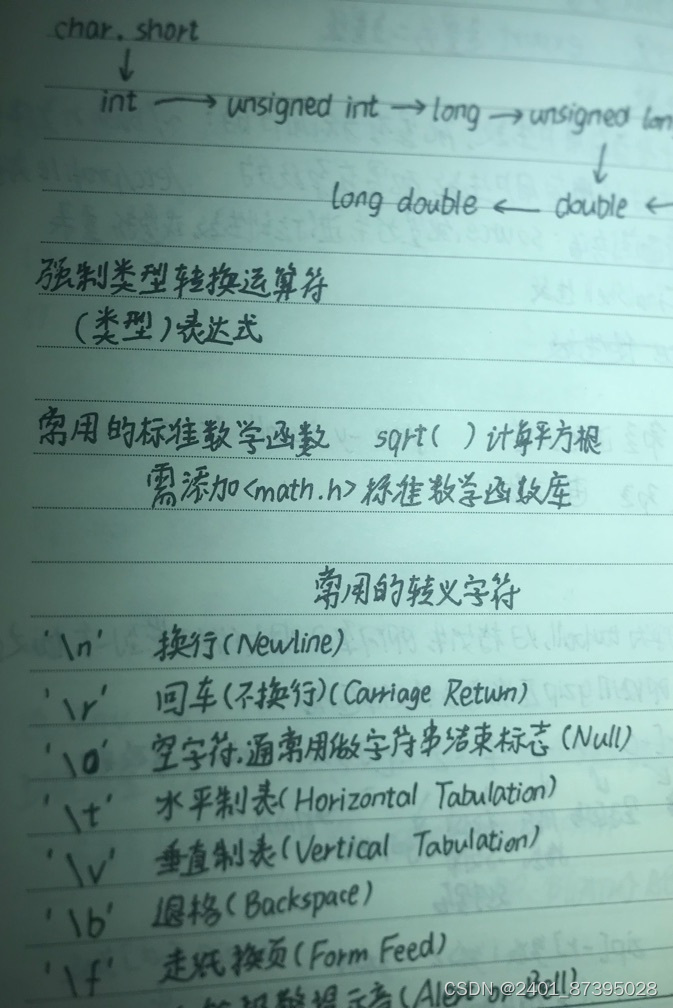 char. short
↓
int → unsigned int → long → unsigned lon
↓
long double ← double ←
强制类型转换运算符
(类型)表达式
常用的标准数学函数 sqrt( )计算平方根
需添加<math.h>标准数学函数库
常用的转义字符
'\n' 换行(Newline)
'\r' 回车(不换行)(Carriage Return)
'\0' 空字符.通常用做字符串结束标志(Null)
'\t' 水平制表(Horizontal Tabulation)
'\v' 垂直制表(Vertical Tabulation)
'\b' 退格(Backspace)
'\f' 走纸换页(Form Feed)
(Alert or Bell)
CSDN @2401_87395028